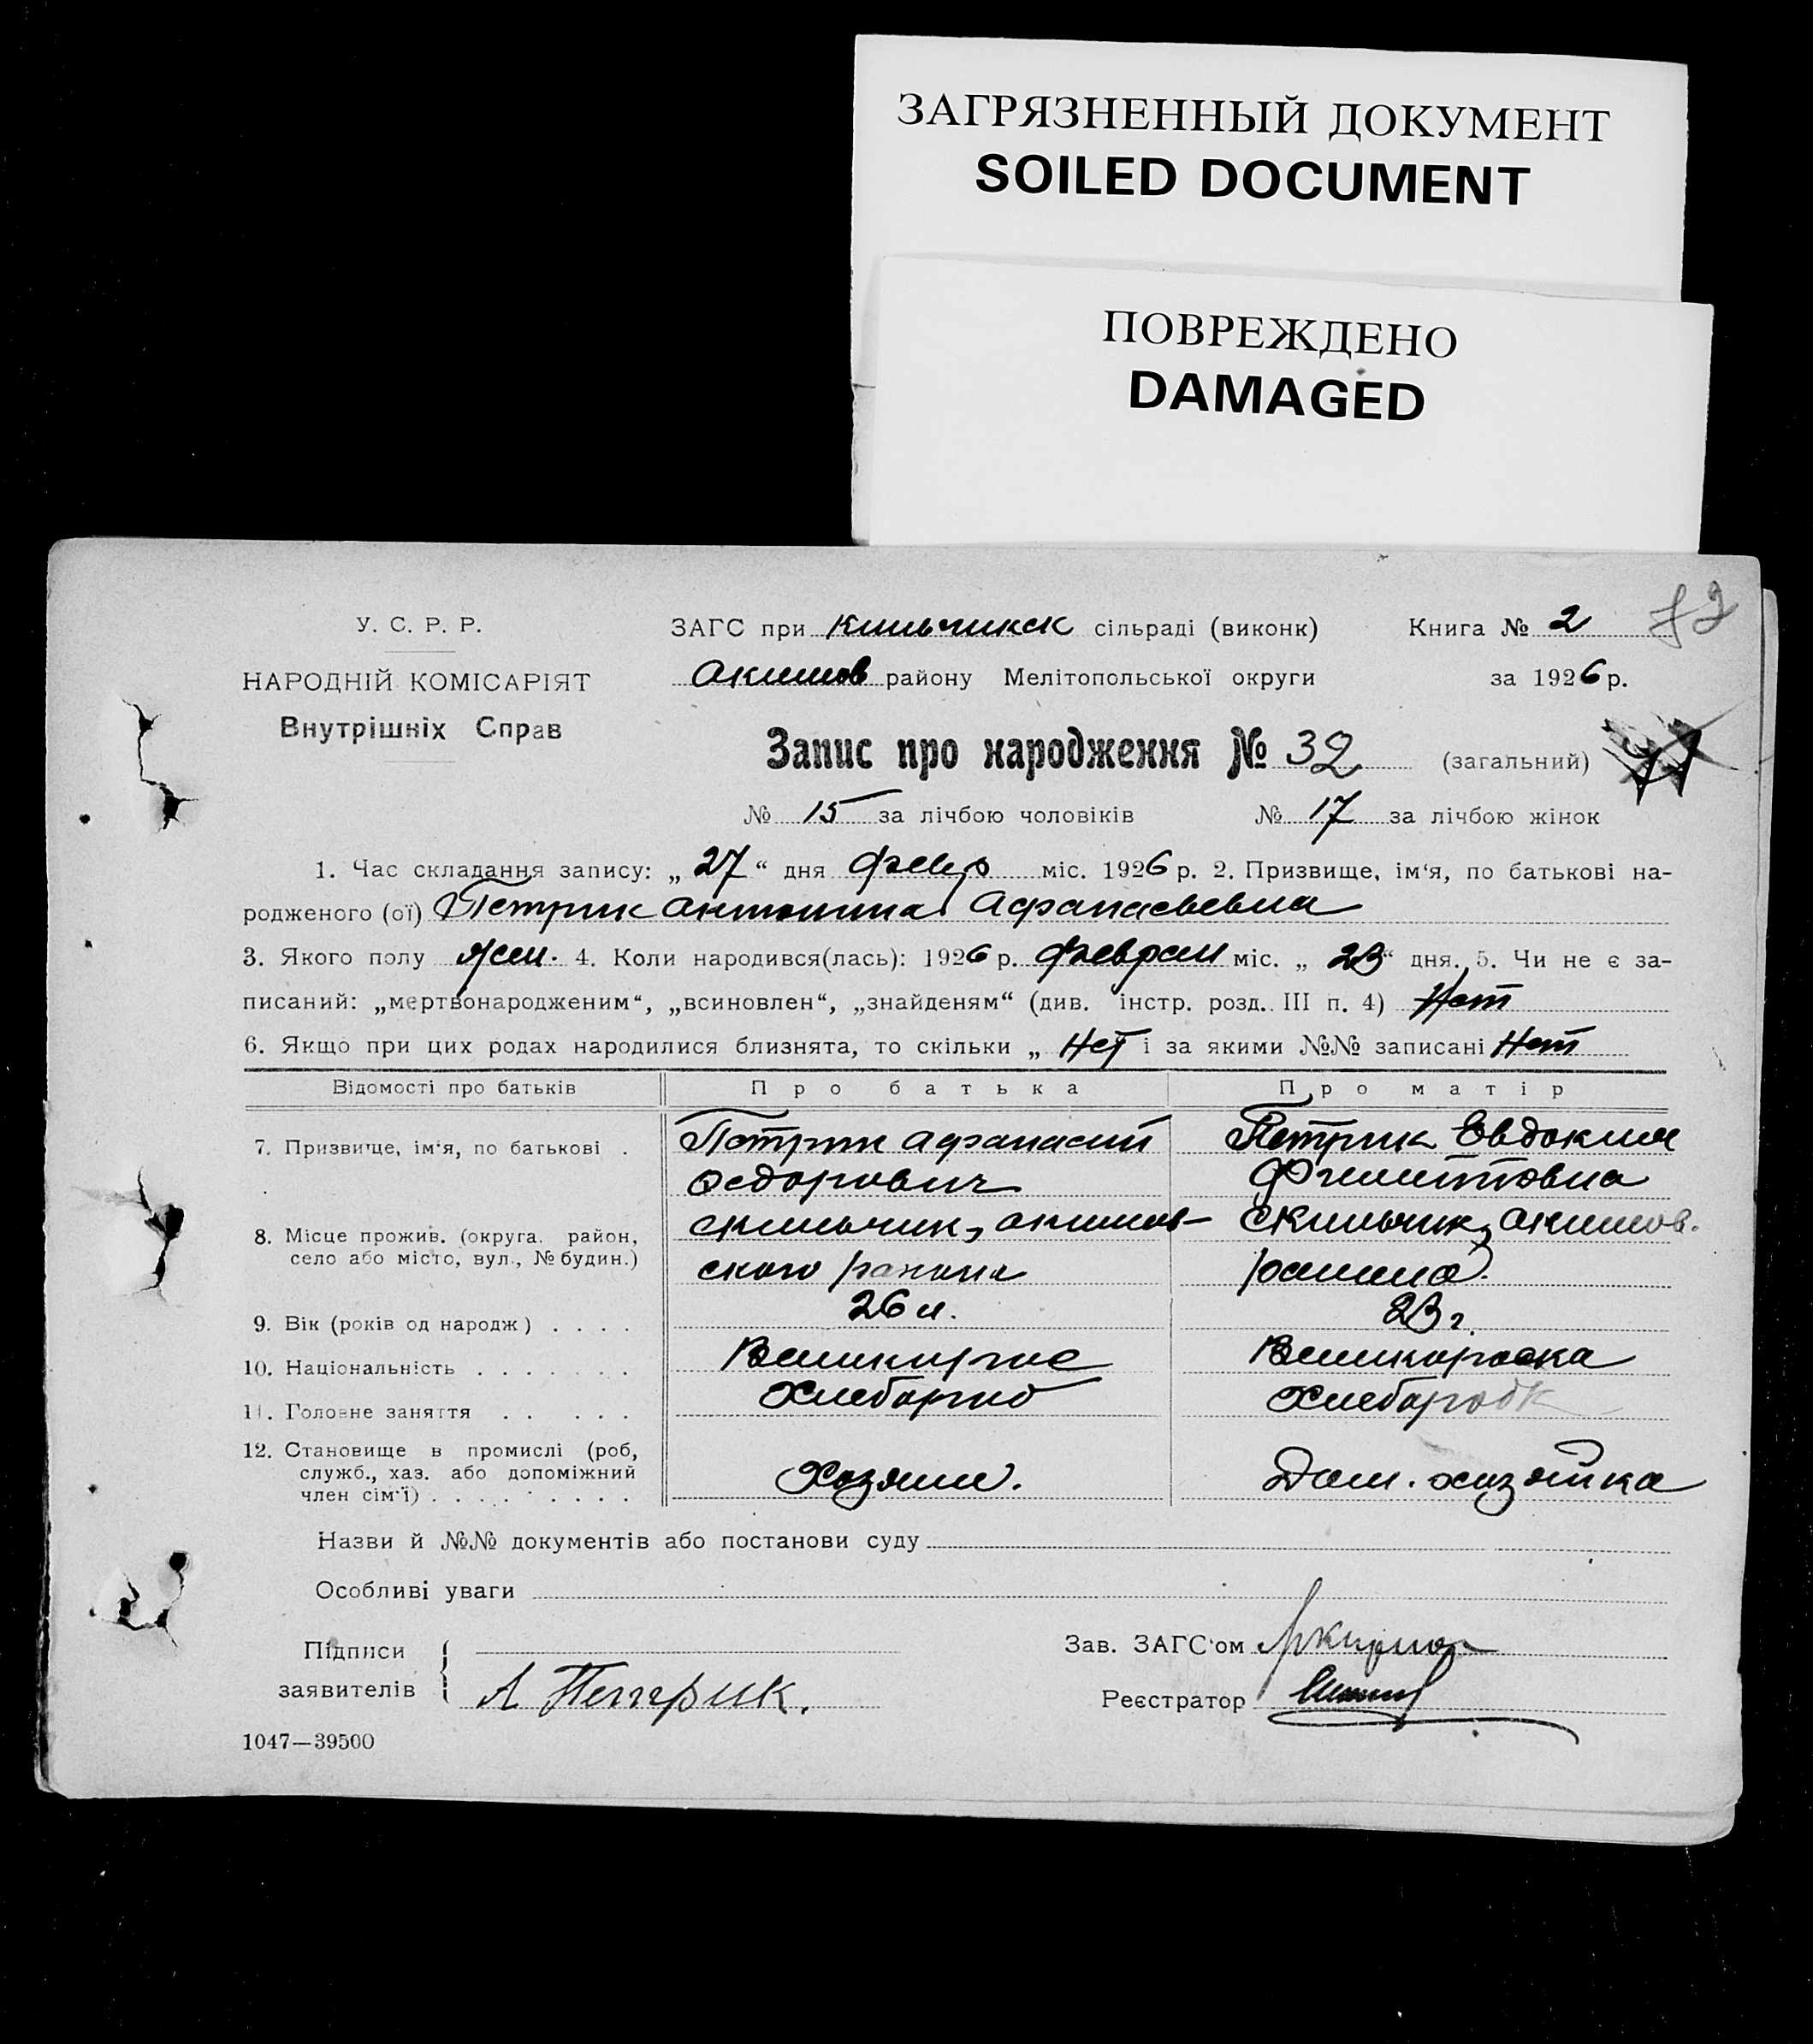 ЗАГРЯЗНЕННЫЙ ДОКУМЕНТ
SOILED DOCUMENT
ПОВРЕЖДЕНО
DAMAGED
У. С. Р. Р.
НАРОДНІЙ КОМІСАРІЯТ
Внутрішніх Справ
ЗАГС при Кильчикск сільраді (виконк)
Акимов району Мелітопольської округи
Книга № 2
за 1926 р.
Запис про народження № 32 (загальний)
№ 15 за лічбою чоловіків № 17 за лічбою жінок
1. Час складання запису: „ 27 “ дня февр міс. 1926 р. 2. Призвище, ім'я, по батькові на-
родженого (ої) Петрик Антонина Афанасьевна
3. Якого полу жен. 4. Коли народився(лась): 1926 р. феврал міс. „ 23 “ дня. 5. Чи не є за-
писаний: „мертвонародженим“, „всиновлен“, „знайденям“ (див. інстр. розд. III п. 4) Нет
6. Якщо при цих родах народилися близнята, то скільки „ Нет і за якими №№ записані Нет
Відомості про батьків Про батька Про матір
7. Призвище, ім'я, по батькові . Петрик Афанасий Петрик Евдокия
Федорович Филипповна
8. Місце прожив. (округа. район, с Кильчик, Акимов- с Кильчик, Акимов.
село або місто, вул., № будин.) ского района района.
9. Вік (років од народж) . . . . 26 л. 23 г.
10. Національність . . . . . . . Великорос Великороска
11. Головне заняття . . . . . Хлебороб Хлебороб
12. Становище в промислі (роб,
служб., хаз. або допоміжний
член сім'ї) . . . . . . . . . Хозяин. Дом. хозяйка
Назви й №№ документів або постанови суду
Особливі уваги
Підписи
заявителів А Петрик.
Зав. ЗАГС'ом
Реєстратор
1047—39500